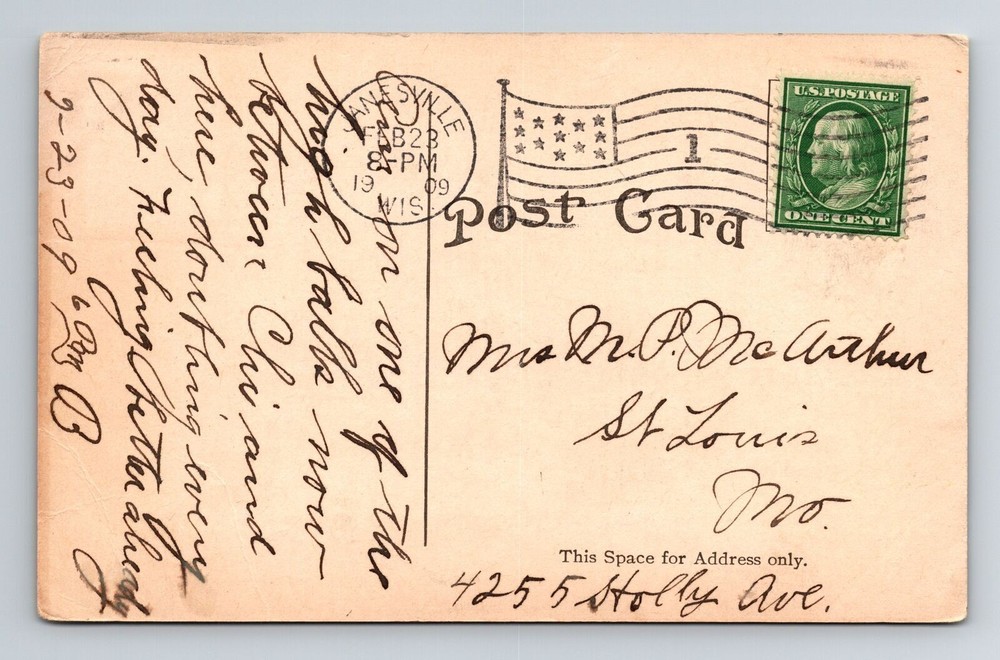 JANESVILLE
FEB 23
8-PM
19 09
WIS.
1
U.S. POSTAGE
ONE CENT
Post Card
Mrs M. P. McArthur
St Louis
Mo.
This Space for Address only.
4255 Holly Ave.
in one of the
high balls now
between Chi and
here, dont thing every
day. Feeling better already
2-23-09 6 PM B